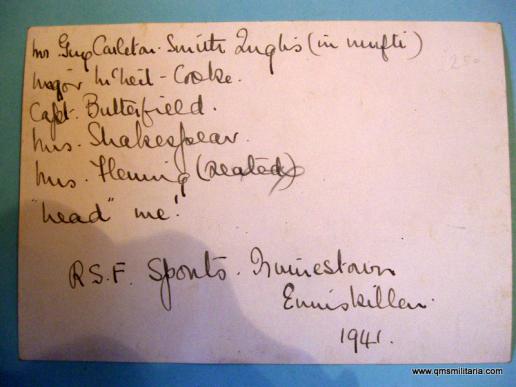 Mr Guy Carleton-Smith Inglis (in mufti)
Major McNeil-Cooke.
Capt. Butterfield.
Mrs. Shakespear.
Mrs. Fleming (seated)
"head" me!
R.S.F. Sports. Irvinestown
Enniskillen.
1941.
www.qmsmilitaria.com